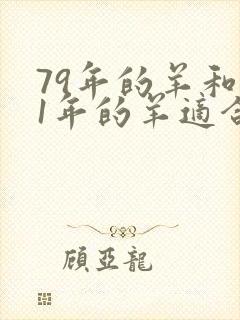 79年的羊和
1年的羊適合
顧亞龍